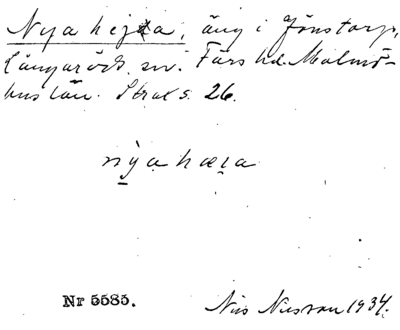 Nya hejda, äng i Jönstorp,
Långaröds sn. Färs hd. Malmö-
hus län. Strax s. 26.
nỳa hæɪa
Nr 5585.
Nils Nilsson 1934.